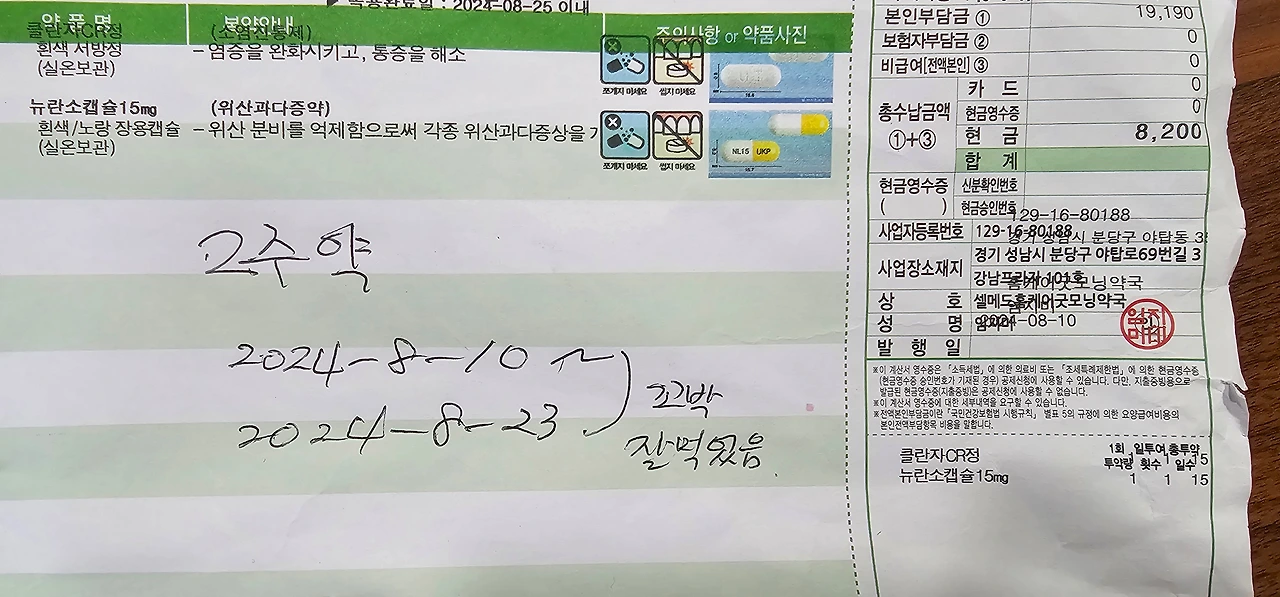 복용완료일 : 2024-08-25 이내
약 품 명 복약안내 주의사항 or 약품사진
클란자CR정 (소염진통제)
흰색 서방정 - 염증을 완화시키고, 통증을 해소
(실온보관)
쪼개지 마세요 씹지 마세요
뉴란소캡슐15mg (위산과다증약)
흰색/노랑 장용캡슐 - 위산 분비를 억제함으로써 각종 위산과다증상을
(실온보관)
NL15 UKP
쪼개지 마세요 씹지 마세요
2주 약
2024-8-10 ~
2024-8-23
잘 먹었음
본인부담금 ① 19,190
보험자부담금 ② 0
비급여[전액본인] ③ 0
총수납금액 ①+③
카 드 0
현금영수증 0
현 금 8,200
합 계
현금영수증 ( )
신분확인번호
현금승인번호
129-16-80188
사업자등록번호 129-16-80188
경기 성남시 분당구 야탑동
사업장소재지 경기 성남시 분당구 야탑로69번길 3
강남프라자 101호
홈케어굿모닝약국
상 호 셀메드홈케어굿모닝약국
성 명 임지미
2024-08-10
발 행 일
※이 계산서 영수증은 「소득세법」에 의한 의료비 또는 「조세특례제한법」에 의한 현금영수증
(현금영수증 승인번호가 기재된 경우) 공제신청에 사용할 수 있습니다. 다만, 지출증빙용으로
발급된 현금영수증(지출증빙)은 공제신청에 사용할 수 없습니다.
※이 계산서 영수증에 대한 세부내역을 요구할 수 있습니다.
※전액본인부담금이란 「국민건강보험법 시행규칙」 별표 5의 규정에 의한 요양급여비용의
본인전액부담항목 비용을 말합니다.
1회 일투여 총투약
투약량 횟수 일수
클란자CR정 1 1 15
뉴란소캡슐15mg 1 1 15